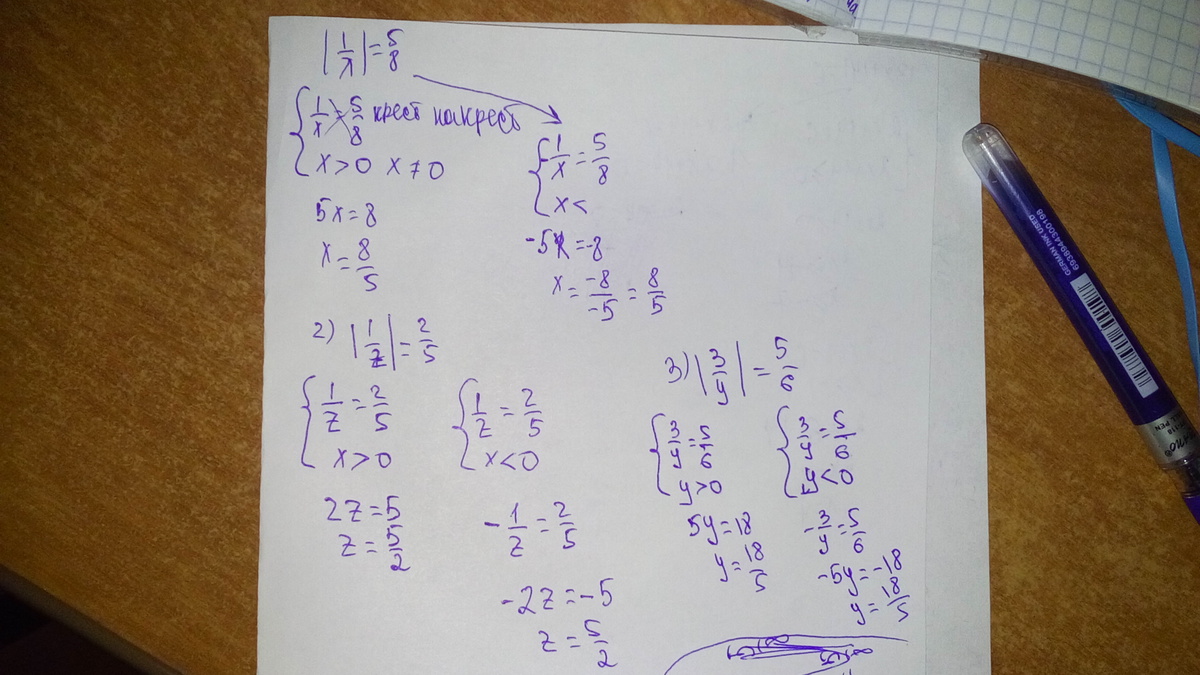 |1/x| = 5/8
{ 1/x = 5/8 крест накрест
x > 0 x ≠ 0
5x = 8
x = 8/5
{ -1/x = 5/8
x <
-5x = -8
x = -8/-5 = 8/5
2) |1/z| = 2/5
{ 1/z = 2/5
x > 0
2z = 5
z = 5/2
{ 1/z = 2/5
x < 0
-1/z = 2/5
-2z = -5
z = 5/2
3) |3/y| = 5/6
{ 3/y = 5/6
y > 0
5y = 18
y = 18/5
{ 3/y = 5/6
y < 0
-3/y = 5/6
-5y = -18
y = 18/5
GERMAN INK USED
6938944300198